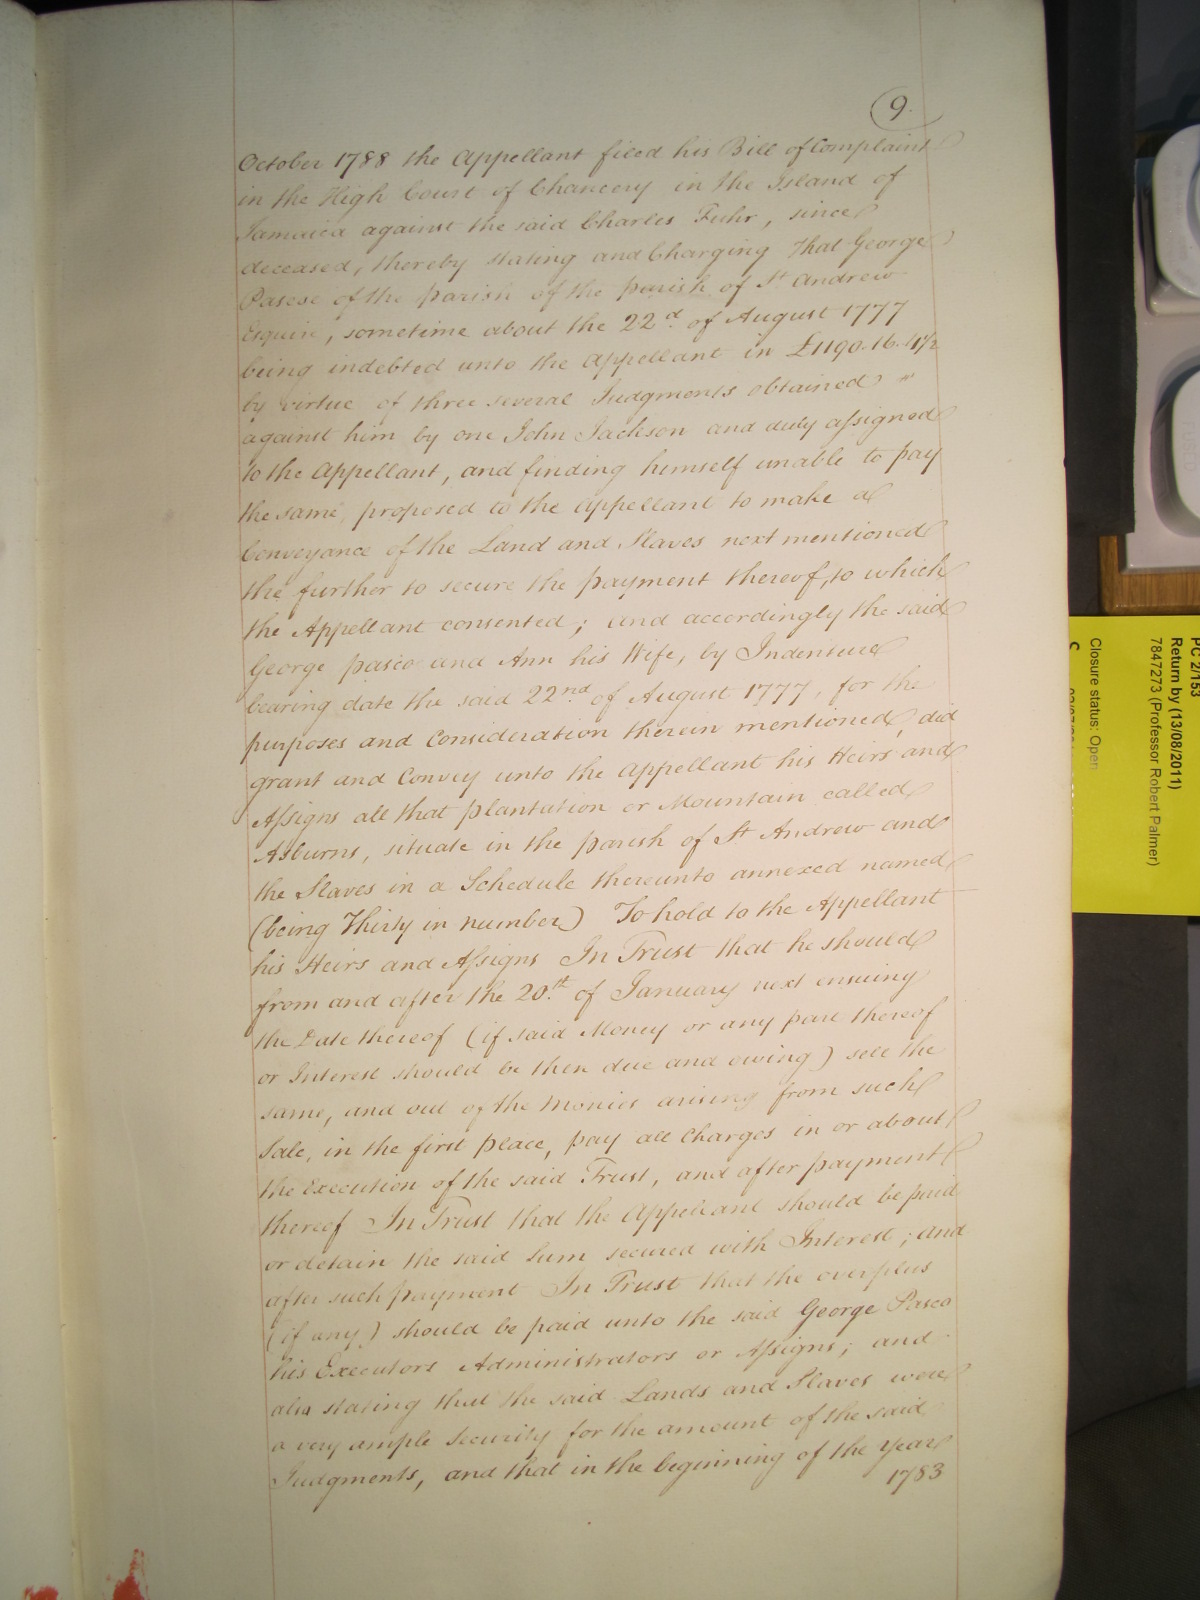 9.
October 1788 the Appellant filed his Bill of Complaint
in the High Court of Chancery in the Island of
Jamaica against the said Charles Fuhr, since
deceased, thereby stating and Charging that George
Pasco of the parish of the parish of St Andrew
Esquire, sometime about the 22d of August 1777
being indebted unto the Appellant in £1190.16.11½
by virtue of three several Judgments obtained
against him by one John Jackson and duly assigned
to the Appellant, and finding himself unable to pay
the same, proposed to the Appellant to make a
Conveyance of the Land and Slaves next mentioned
the further to secure the payment thereof, to which
the Appellant consented; and accordingly the said
George Pasco and Ann his Wife, by Indenture
bearing date the said 22nd of August 1777, for the
purposes and Consideration therein mentioned, did
grant and Convey unto the Appellant his Heirs and
Assigns all that plantation or Mountain called
Asburns, situate in the parish of St Andrew and
the Slaves in a Schedule thereunto annexed named
(being Thirty in number) To hold to the Appellant
his Heirs and Assigns In Trust that he should
from and after the 20th of January next ensuing
the Date thereof (if said Money or any part thereof
or Interest should be then due and owing) sell the
same, and out of the Monies arising from such
Sale, in the first place, pay all Charges in or about
the Execution of the said Trust, and after payment
thereof In Trust that the Appellant should be paid
or detain the said Sum secured with Interest; and
after such payment In Trust that the overplus
(if any) should be paid unto the said George Pasco
his Executors Administrators or Assigns; and
also stating that the said Lands and Slaves were
a very ample Security for the amount of the said
Judgments, and that in the beginning of the Year
1783
PC 2/153
Return by (13/08/2011)
7847273 (Professor Robert Palmer)
Closure status: Open